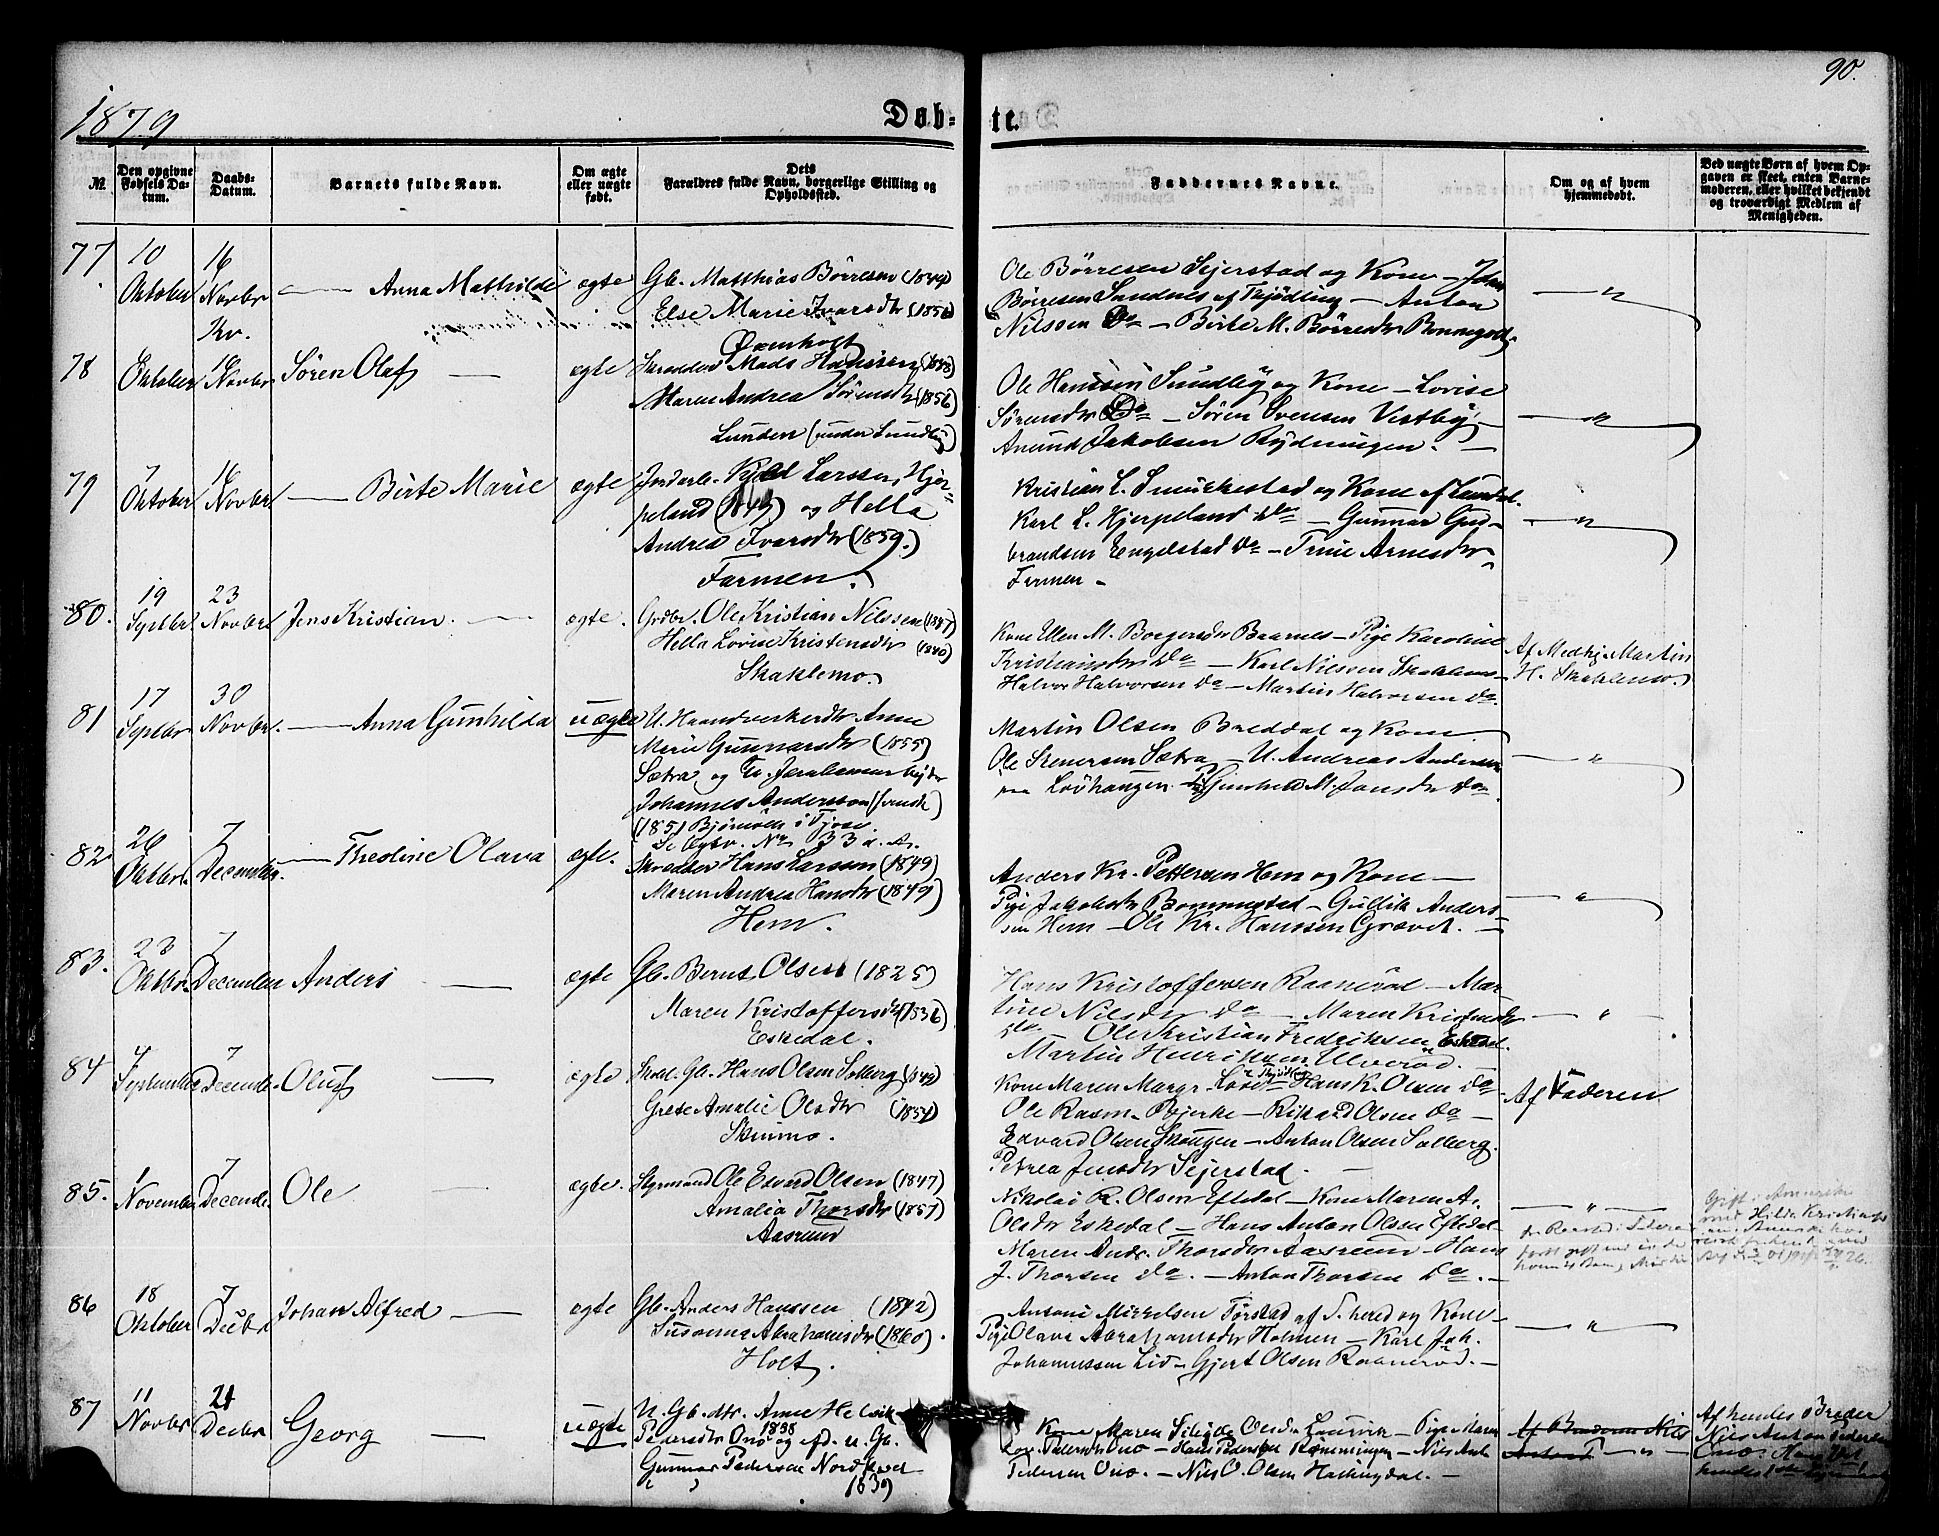 1879
Døb-
te.
90.
№
Den opgivne Fødsels Da-tum.
Daabs-Datum.
Barnets fulde Navn.
Om ægte eller uægte født.
Dets Forældres fulde Navn, borgerlige Stilling og Opholdssted.
Faddernes Navne.
Om og af hvem hjemmedøbt.
Ved uægte Børn af hvem Op-gaven er skeet, enten Barne-moderen, eller hvilket bekjendt og troværdigt Medlem af Menigheden.
77
10 Oktober
16 Novbr
Kv.
Anna Mathilde
ægte
Gb. Matthias Børresen (1844)
Else Marie Ivarsdtr (1856)
Øvenholt
Ole Børresen Sejerstad og Kone - John
Børresen Sandnes af Thjødling - Anton
Nilssen Do - Birte M. Børresdtr
"
78
Oktober
16 Novbr
Søren Olaf
ægte
Skrædder Mads Hanssen (1848)
Maren Andrea Sørensdtr (1856)
Lunden (under Sundby)
Ole Hanssen Sundby og Kone - Lovise
Sørensdtr Do - Søren Svensen Vestby
Anund Jakobsen Rydningen. -
"
79
7 Oktober
16 Novbr
Birte Marie
ægte
Inderb. Kjeld Larssen, Hjer-
peland og Hella
Andrea Ivarsdtr (1859.)
Farmen.
Kristian L. Smukkestad og Kone af
Karl L. Hjerpeland Do - Gunnar Gud-
brandsen Engelstad Do - Trine Arnesdtr
Farmen -
"
80.
19 Septbr.
23 Novbr
Jens Kristian.
ægte.
Grdbr. Ole Kristian Nilssen (1847)
Hella Lovise Kristensdtr (1840)
Skaklemo.
Kone Ellen M. Borgersdtr Baarnes - Pige Karoline
Kristiansdtr Do - Karl Nilssen
Halvor Halvorsen Do - Martin Halvorsen Do.
Af Medhj. Martin
H. Skaklemo.
81
17 Septbr
30 Novbr.
Anna Gunhilda
uægte
U. Haandverkerdtr Anne
Marie Gunnarsdtr (1855)
Sætra, og U.
Johannes Andersson (svensk)
(1851
Se Legbr. Nr 33 d. A.
Martin Olsen Breddal og Kone
Ole Stenersen Sætra - U. Andreas Andersen
Løvhaugen - Pige Gunhild M. Jansdtr Do
"
82
26 Oktbr.
7 December
Theoline Olava
ægte.
Skrædder Hans Larssen (1849)
Maren Andrea Hansdtr (1849)
Hem.
Anders Kr. Pettersen Hem og Kone -
Pige Jakobsdtr Bommestad - Gullik Anders-
sen Hem - Ole Kr. Hanssen Grævet. -
"
83.
23 Oktbr.
7 December
Anders
ægte
Gb. Bernt Olsen (1825)
Maren Kristoffersdtr (1836)
Eskedal.
Hans Kristoffersen Raanerød - Mar-
tine Nilsdtr Do - Maren
Do - Ole Kristian Fredriksen Eskedal.
Martin Henriksen Ulverød.
"
84
4 September
7 Decembr.
Oluf
ægte
Gb. Hans Olsen Solberg (1849)
Grete Amalie Olsdtr (1854)
Skinmo.
Kone Maren Margr. - Hans K. Olsen Do
Ole Rasm. Bjerke - Rikard Olsen Do -
Edvard Olsen Skougen - Anton Olsen Solberg.
Petrea Jensdtr Sejerstad. -
Af Faderen
85.
1 November
7 Decembr.
Ole
ægte.
Styrmand Ole Edvard Olsen (1847)
Amalia Thorsdtr (1857)
Aasrum
Nikolai R. Olsen Eftedal - Kone Maren A.
Olsdtr Eskedal - Hans Anton Olsen Eftedal
Maren Andr. Thorsdtr Aasrum - Hans
J. Thorsen Do. - Anton Thorsen Do. -
"
Gift i Amerika
med Hilda
86
18 Oktober
7 Decbr
Johan Alfred
ægte
Gb. Anders Hanssen (1842)
Susanna Abrahamsdtr (1860)
Holt.
Antoni Mikkelsen Førstad af S. herred og Kone -
Pige Olava Abrahamsdtr Holmen - Karl Joh.
Johannessen Lid - Gjert Olsen Raanerød. -
"
87
11 Novbr
21 Decbr
Georg
uægte
U. Gb. dtr. Anne Helvik
Pedersdtr Ono 1858 og efd. u. Gb.
Gunnar Pedersen
1839
Kone Maren Olsdtr Laurvik - Pige Maren
Lov. Pedersdtr Ono - Hans Pedersen Rønningen - Nils Ant.
Pedersen Ono. - Nils O. Olsen Hallingdal. -
Af Broderen Nils
Anton P
Af hendes Broder
Nils Anton Pedersen
Ono.